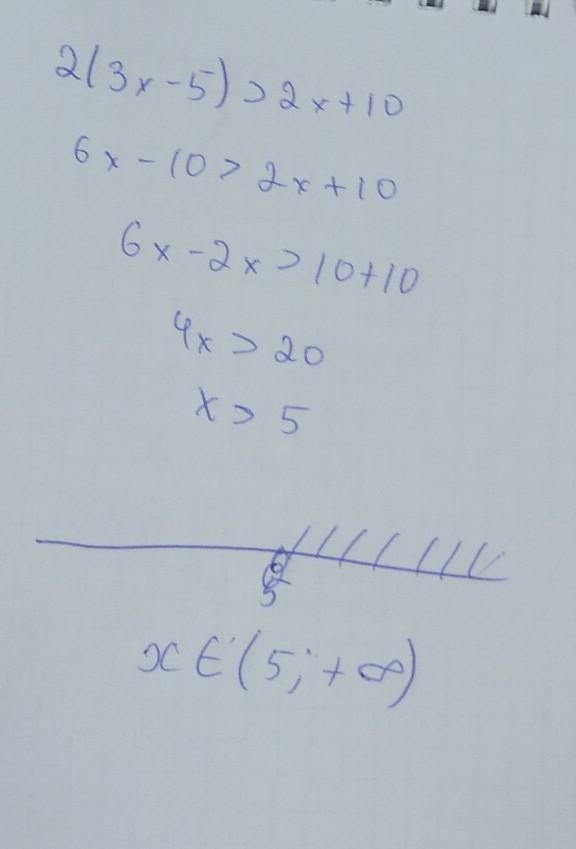 2(3x-5)>2x+10
6x-10>2x+10
6x-2x>10+10
4x>20
x>5
5
x∈(5;+∞)